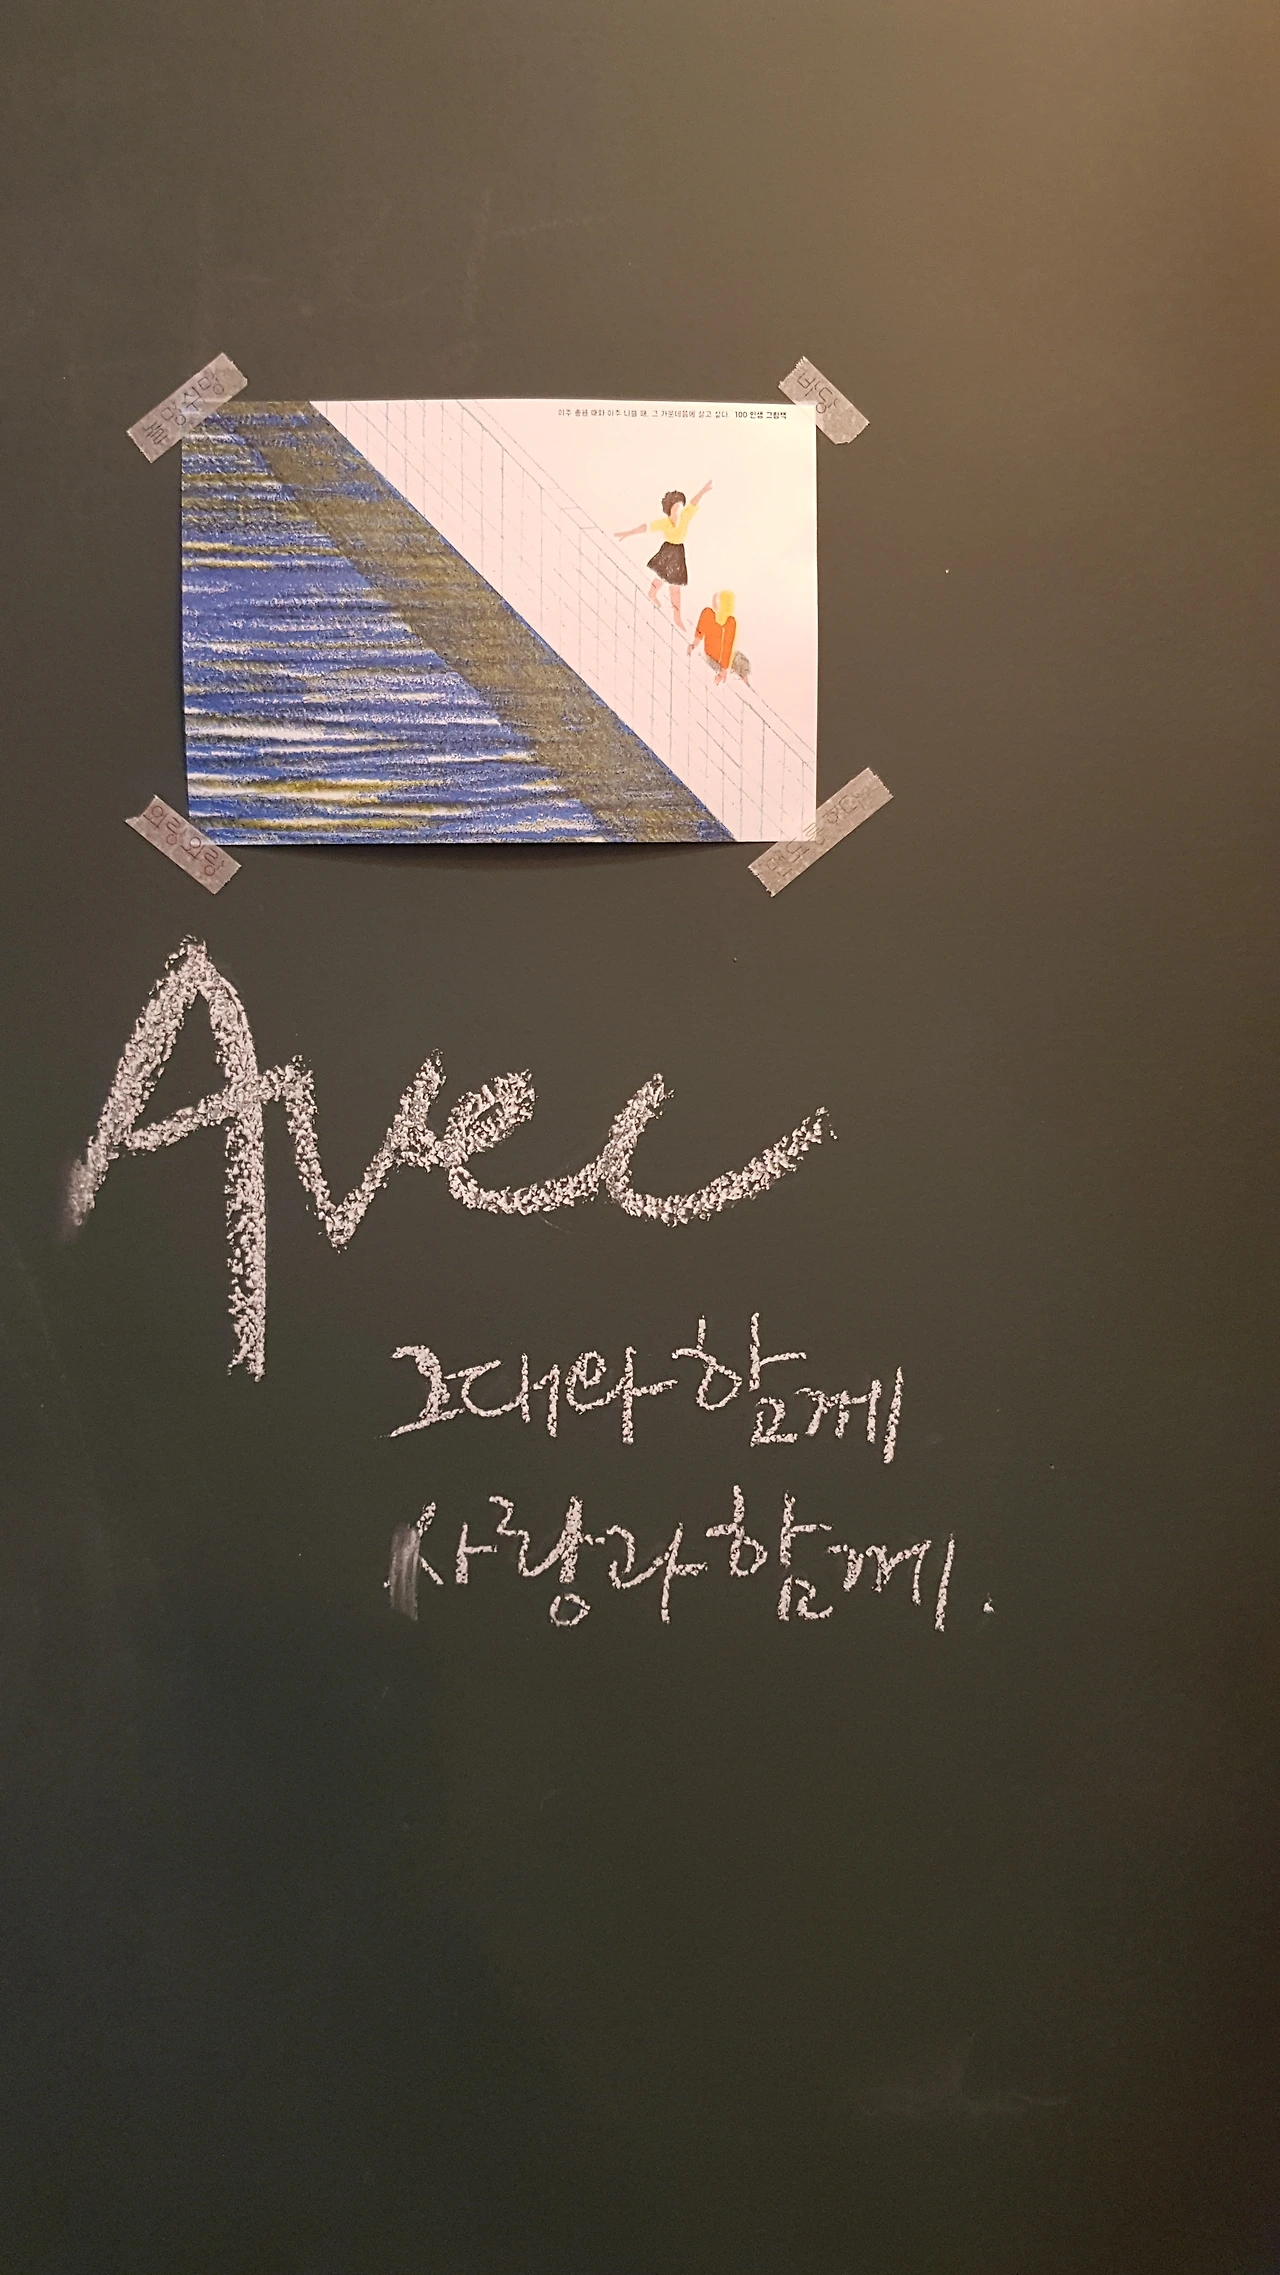 아주 좋을 때와 아주 나쁠 때, 그 가운데쯤에 살고 싶다. 100 인생 그림책
Avec
그대와 함께
사랑과 함께.